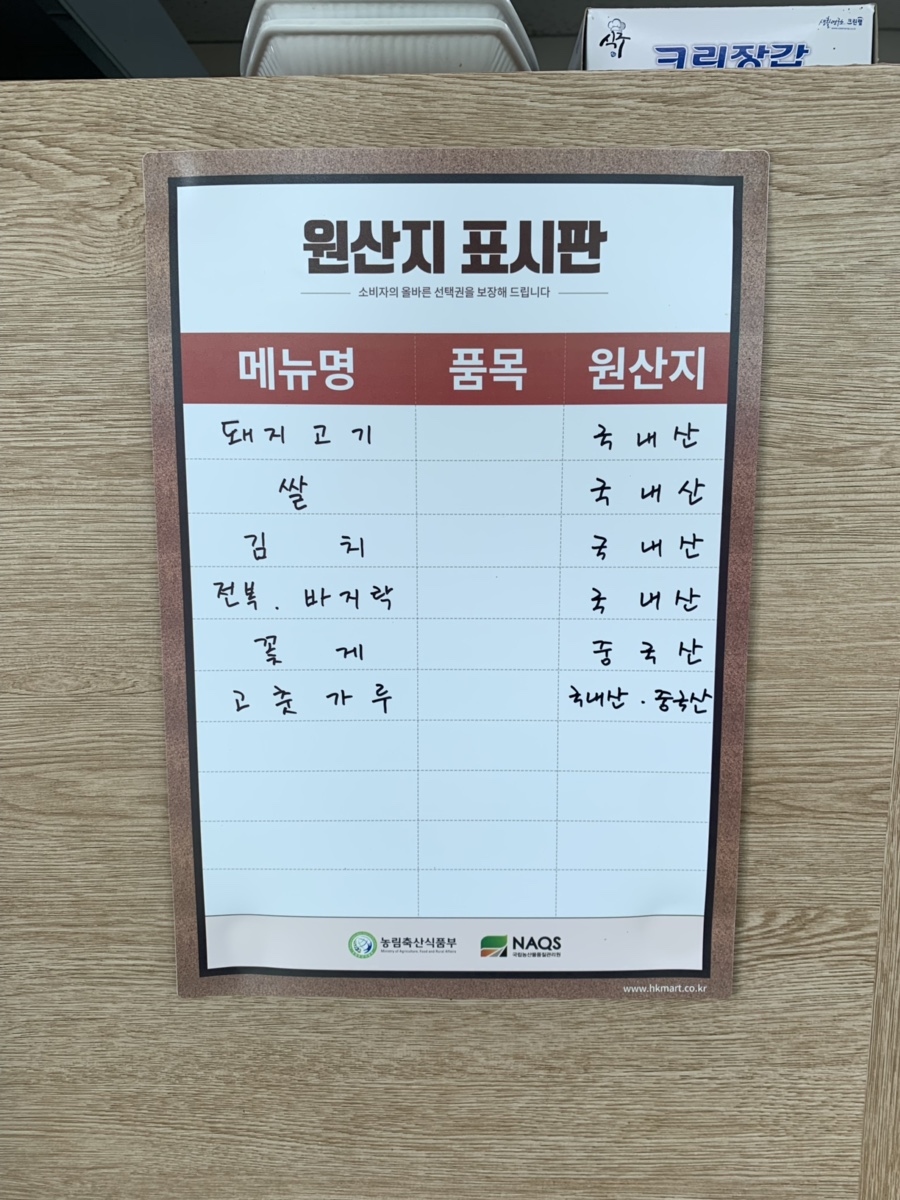 식주
크린장갑
원산지 표시판
소비자의 올바른 선택권을 보장해 드립니다
메뉴명 품목 원산지
돼지고기 국내산
쌀 국내산
김치 국내산
전복. 바지락 국내산
꽃게 중국산
고춧가루 국내산 · 중국산
농림축산식품부 NAQS
Ministry of Agriculture, Food and Rural Affairs 국립농산물품질관리원
www.hkmart.co.kr